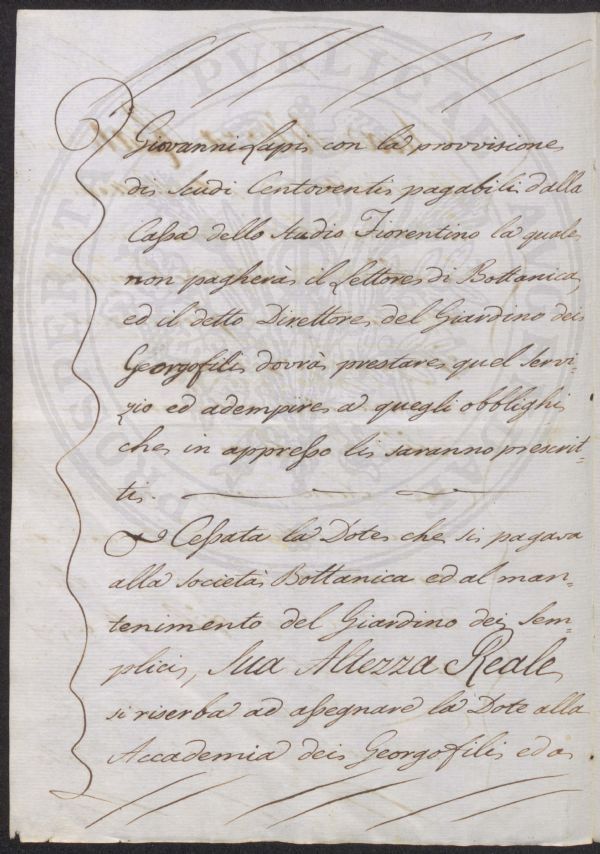 Giovanni Lapi con la provvisione
di Scudi Centoventi pagabili dalla
Cassa dello Studio Fiorentino la quale
non pagherà il Lettore di Bottanica,
ed il detto Direttore del Giardino dei
Georgofili dovrà prestare quel Servi-
zio ed adempire a quegli obblighi
che in appresso li saranno prescrit-
ti.
E Cessata la Dote che si pagava
alla Società Bottanica ed al man-
tenimento del Giardino dei Sem-
plici, Sua Altezza Reale
si riserba ad assegnare la Dote alla
Accademia dei Georgofili ed a
PROSPERITATI PUBLICAE